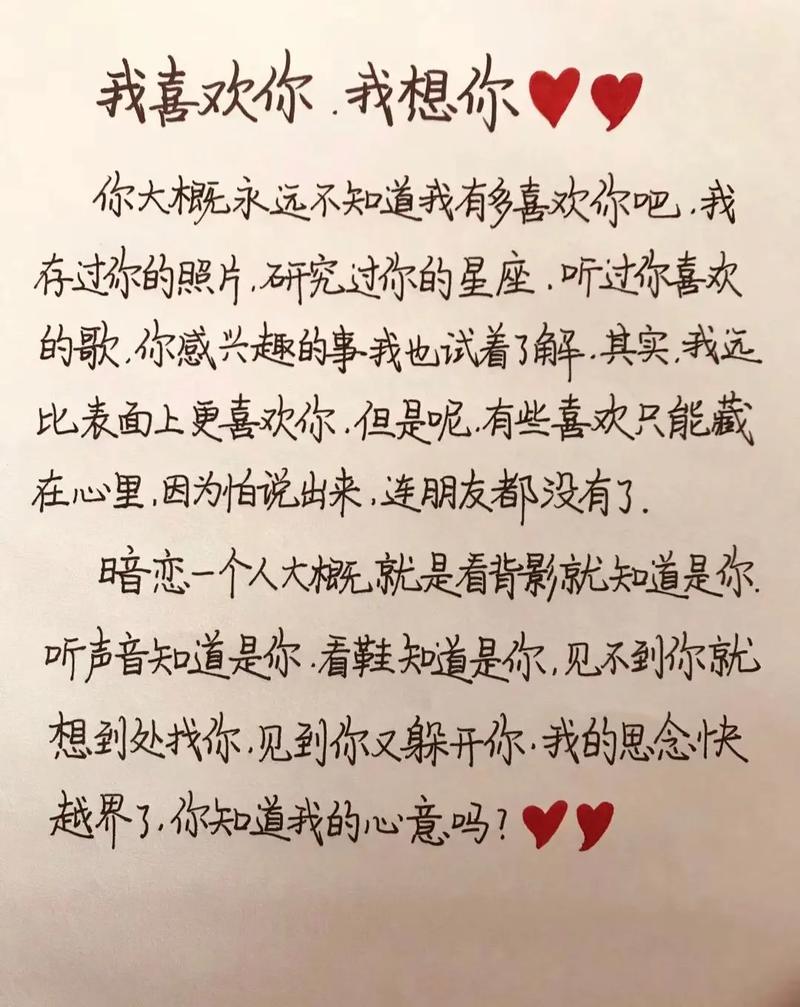 我喜欢你.我想你
你大概永远不知道我有多喜欢你吧.我
存过你的照片.研究过你的星座.听过你喜欢
的歌.你感兴趣的事我也试着了解.其实.我远
比表面上更喜欢你.但是呢.有些喜欢只能藏
在心里,因为怕说出来,连朋友都没有了.
暗恋一个人大概就是看背影就知道是你.
听声音知道是你.看鞋知道是你,见不到你就
想到处找你,见到你又躲开你.我的思念快
越界了,你知道我的心意吗?